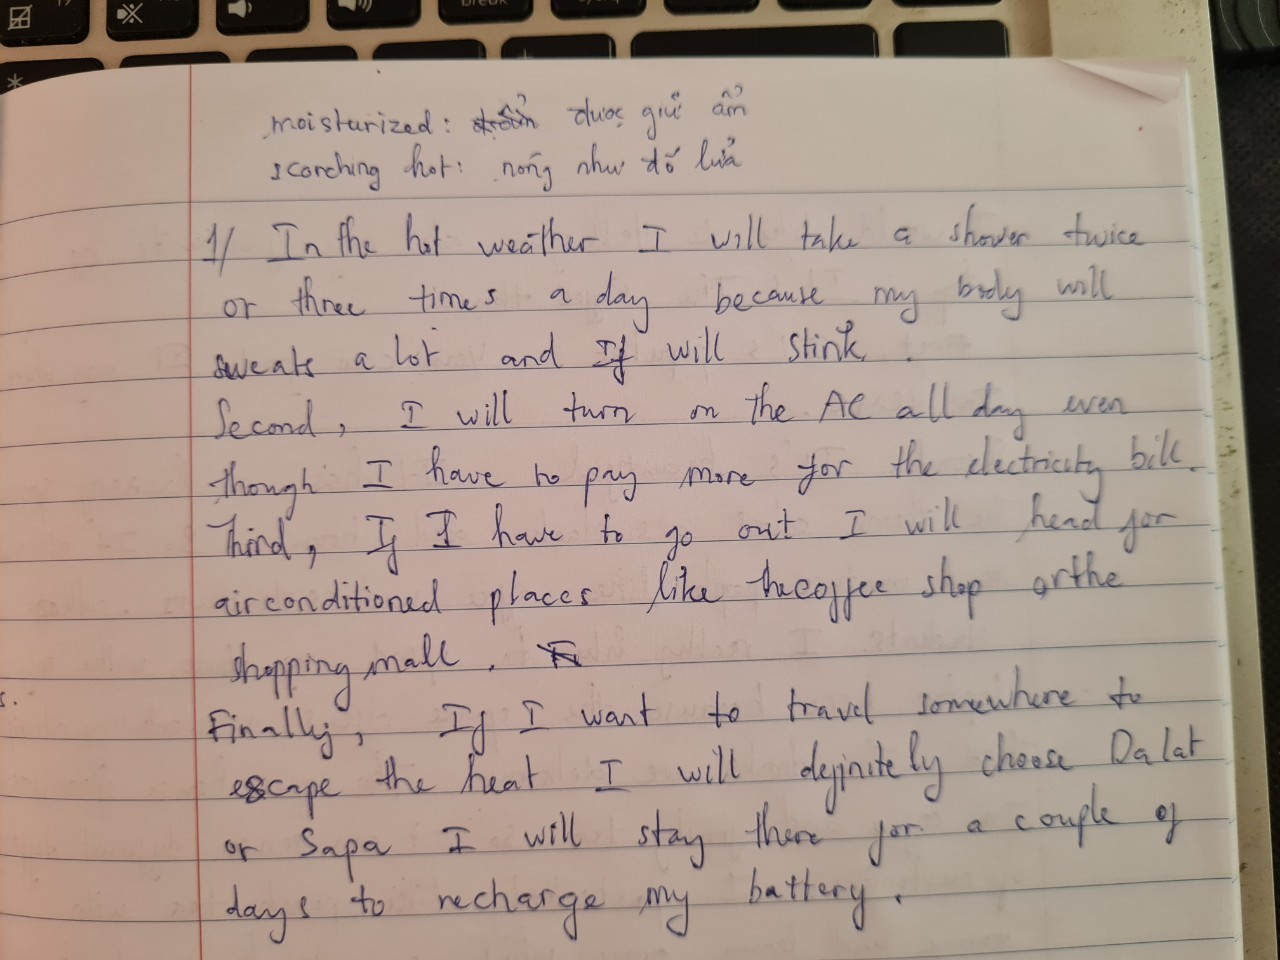 break
moisturized: được giữ ẩm
scorching hot: nóng như đổ lửa
1/ In the hot weather I will take a shower twice
or three times a day because my body will
sweats a lot and If will stink.
Second, I will turn on the AC all day even
though I have to pay more for the electricity bill.
Third, If I have to go out I will head for
airconditioned places like thecoffee shop orthe
shopping mall.
s.
Finally, If I want to travel somewhere to
escape the heat I will definitely choose Dalat
or Sapa I will stay there for a couple of
days to recharge my battery.